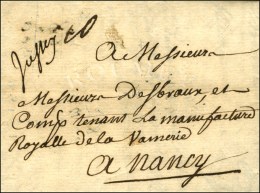 A Messieurs
Messieurs Desbraux et
Comp tenant la manufacture
Royalle de la Vannerie
a Nancy